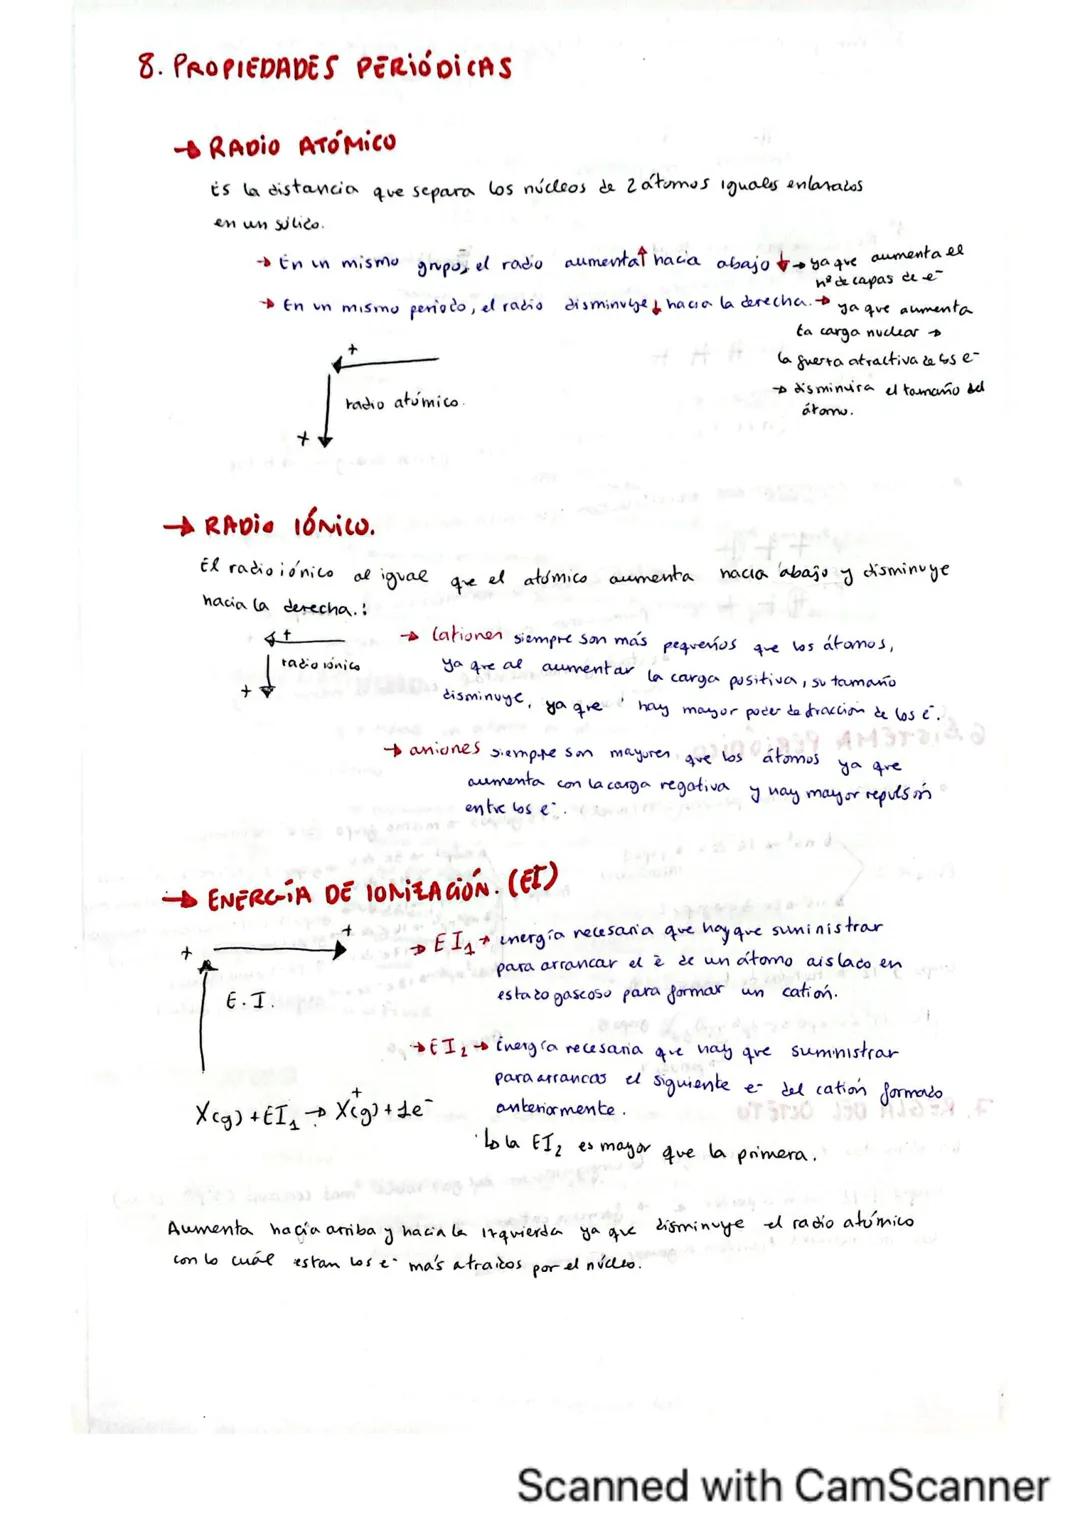 8. PROPIEDADES PERIÓDICAS
→ RADIO ATÓMICO
Es la distancia que separa los núcleos de 2 átomos iguales enlazados
en un sólido.
→ En un mismo grupo, el radio aumenta↑ hacia abajo ↓→ ya que aumenta el
nº de capas de e-
→ En un mismo periodo, el radio disminuye↓ hacia la derecha.→ ya que aumenta
la carga nuclear →
la fuerza atractiva de los e-
→ disminuira el tamaño del
átomo.
+
radio atómico.
+
→ RADIO IÓNICO.
El radio iónico al igual que el atómico aumenta hacia abajo y disminuye
hacia la derecha.:
+
radio iónico
+
→ Cationen siempre son más pequeños que los átomos,
ya que al aumentar la carga positiva, su tamaño
disminuye, ya que hay mayor poder de tracción de los e-.
→ aniones siempre son mayores que los átomos ya que
aumenta con la carga negativa y hay mayor repulsión
entre los e-.
→ ENERGÍA DE IONIZACIÓN. (EI)
+
+
E.I.
→ EI₁ → energía necesaria que hay que suministrar
para arrancar el e- de un átomo aislado en
estado gascoso para formar un catión.
→ EI₂ → Energía necesaria que hay que suministrar
para arrancas el siguiente e- del catión formado
anteriormente.
↳ la EI₂ es mayor que la primera.
X(g) + EI₁ → X⁺(g) + 1e⁻
Aumenta hacía arriba y hacia la izquierda ya que disminuye el radio atómico
con lo cuál estan los e- más atraidos por el núcleo.
Scanned with CamScanner